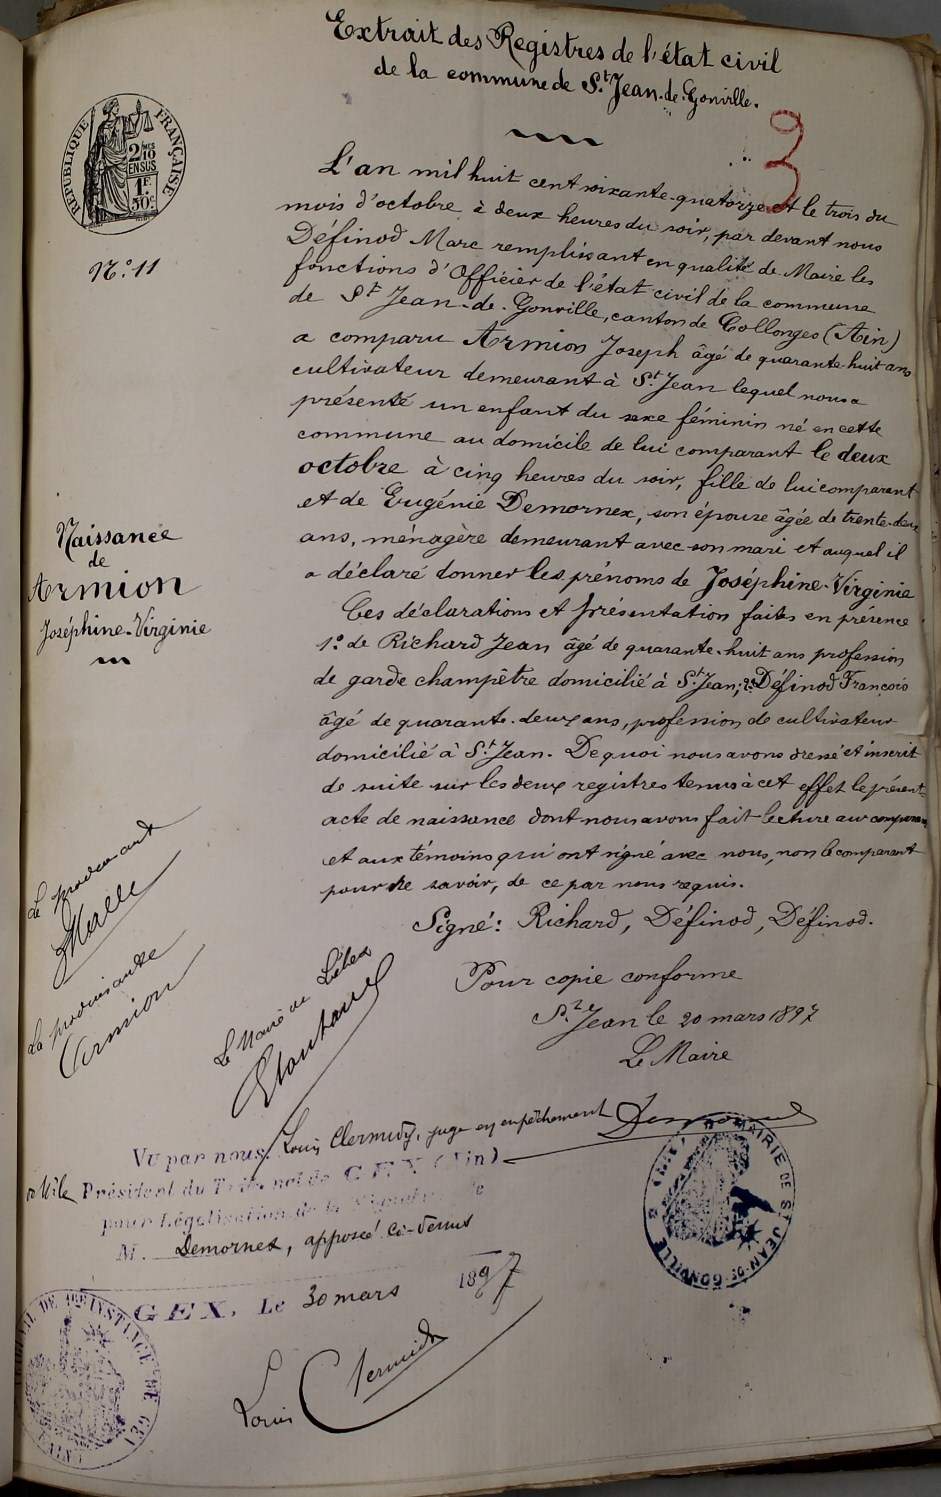 Extrait des Registres de l'état civil
de la commune de St Jean-de-Gonville.
3
RÉPUBLIQUE FRANÇAISE
2/10
EN SUS
1F
50c
N° 11
L'an mil huit cent soixante-quatorze et le trois du
mois d'octobre à deux heures du soir, par devant nous
Définod Marc remplissant en qualité de Maire les
fonctions d'Officier de l'état civil de la commune
de St Jean-de-Gonville, canton de Collonges (Ain)
a comparu Armion Joseph âgé de quarante-huit ans
cultivateur demeurant à St Jean lequel nous a
présenté un enfant du sexe féminin né en cette
commune au domicile de lui comparant le deux
octobre à cinq heures du soir, fille de lui comparant
et de Eugénie Demornex, son épouse âgée de trente-deux
ans, ménagère demeurant avec son mari et auquel il
a déclaré donner les prénoms de Joséphine-Virginie
Ces déclarations et présentation faites en présence
1° de Richard Jean âgé de quarante-huit ans profession
de garde champêtre domicilié à St Jean; 2° Définod François
âgé de quarante-deux ans, profession de cultivateur
domicilié à St Jean. De quoi nous avons dressé et inscrit
de suite sur les deux registres tenus à cet effet le présent
acte de naissance dont nous avons fait lecture au comparant
et aux témoins qui ont signé avec nous, non le comparant
pour ne savoir, de ce par nous requis.
Signé: Richard, Définod, Définod.
Naissance
de
Armion
Joséphine-Virginie
Pour copie conforme
St Jean le 20 mars 1897
Le Maire
Le produisant
La produisante
Armion
Le Maire de Lélex
Vu par nous, Louis Clermidy, juge en empêchement
Président du Tribunal de GEX (Ain)
pour Légalisation de la Signature de
M. Demornex, apposé ci-dessus
GEX, Le 30 mars 1897
Louis Clermidy
MAIRIE DE ST JEAN-DE-GONVILLE
TRIBUNAL DE 1ère INSTANCE DE GEX